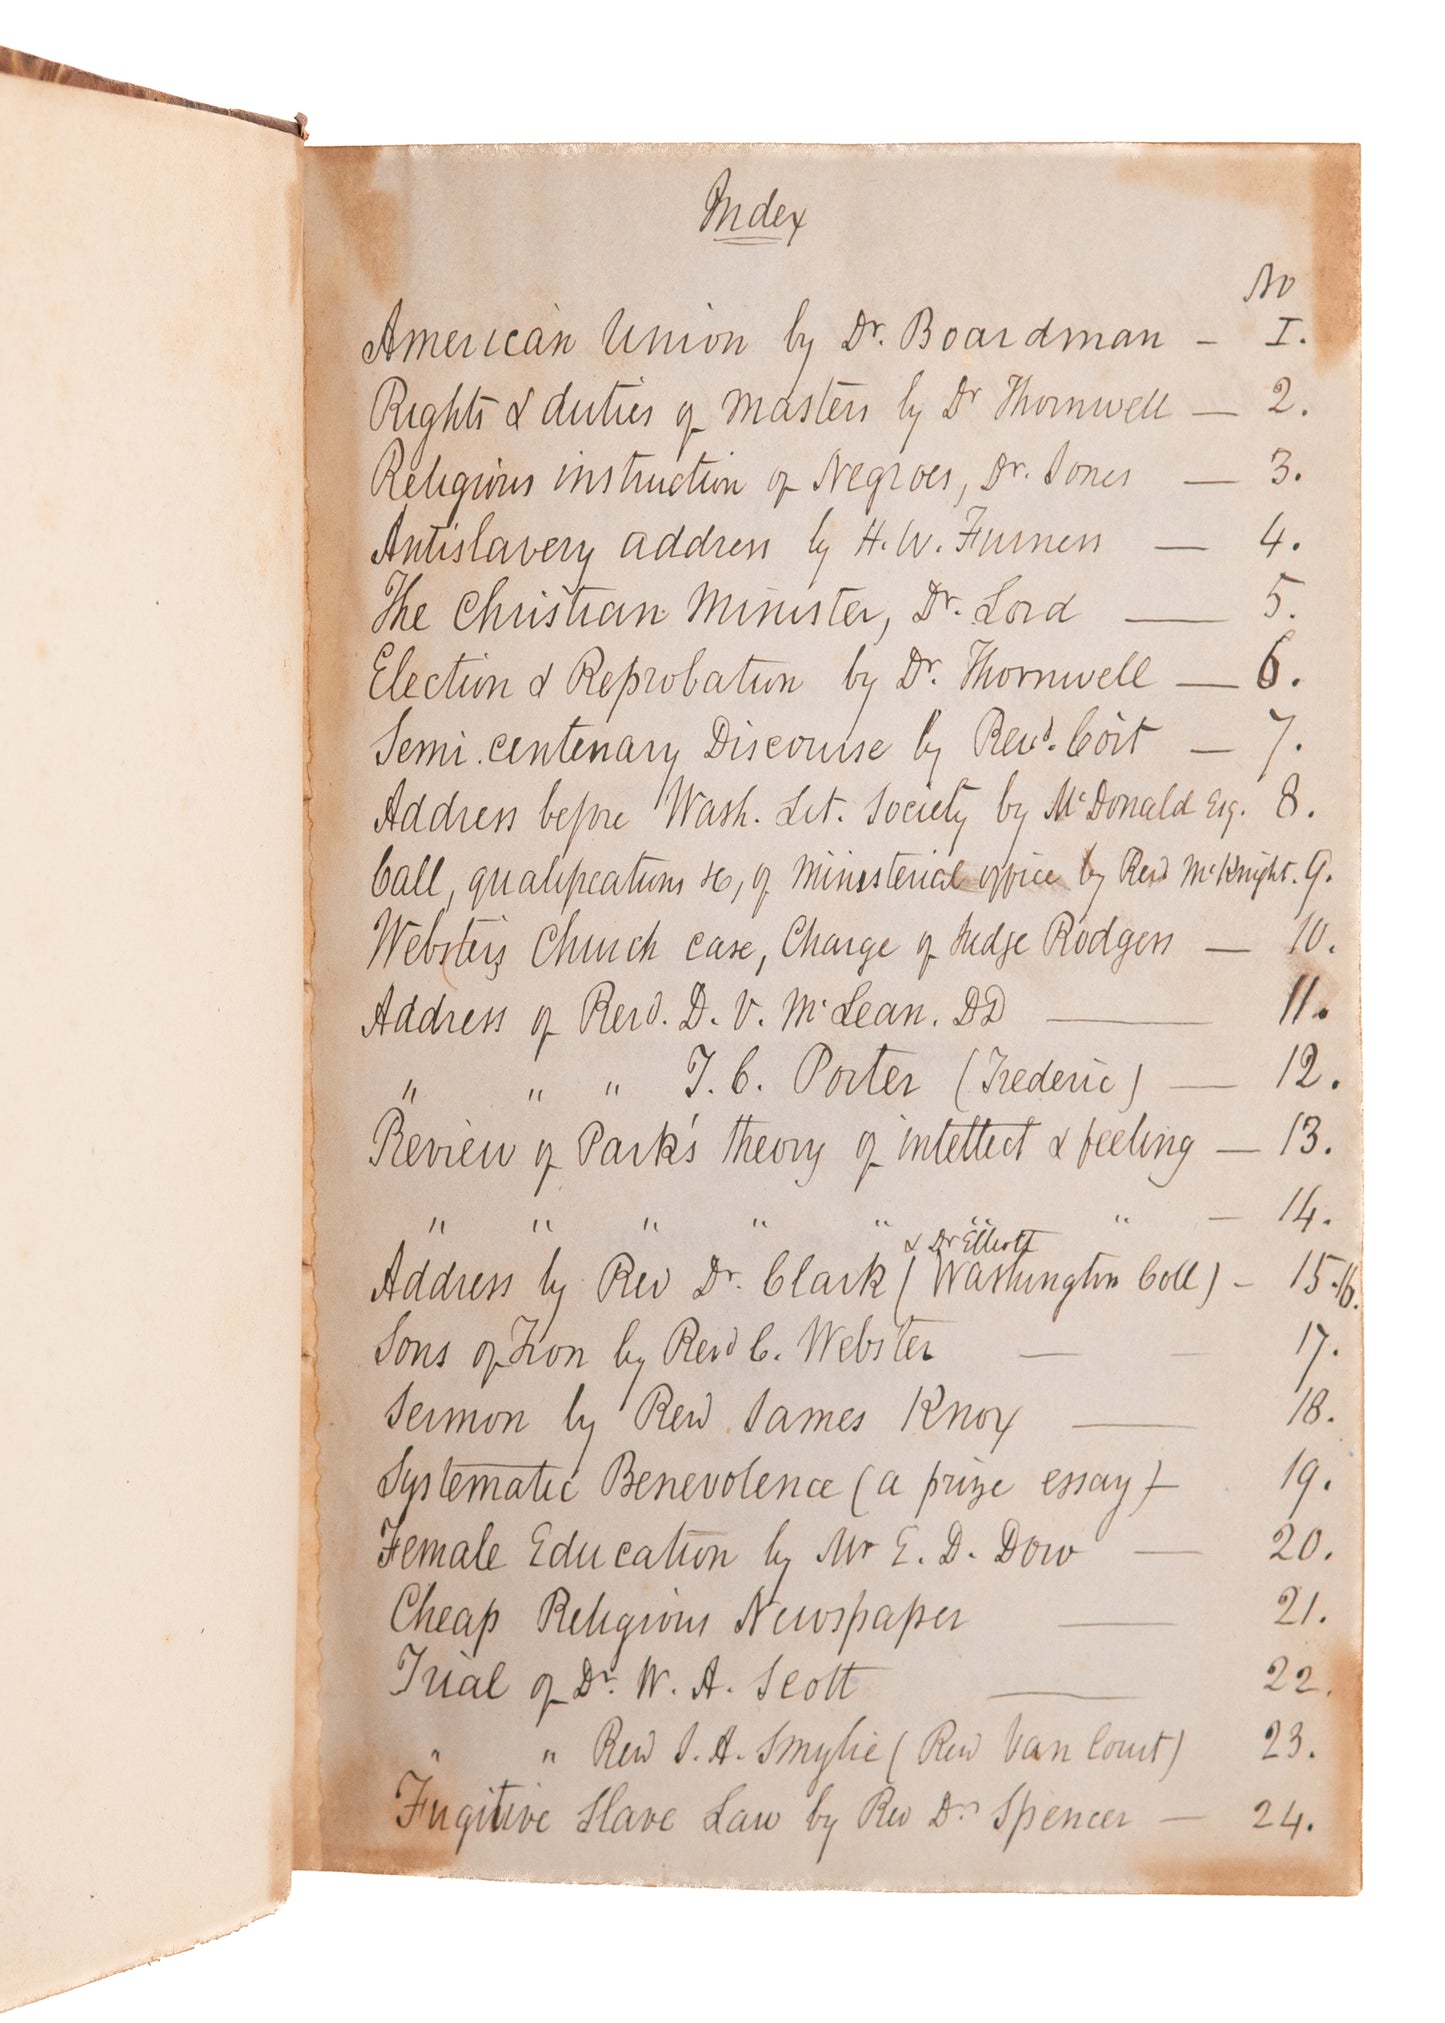 Index
No
American Union by Dr. Boardman - I.
Rights & duties of Masters by Dr Thornwell — 2.
Religious instruction of Negroes, Dr. Jones — 3.
Antislavery address by H. W. Furness — 4.
The Christian Minister, Dr. Lord — 5.
Election & Reprobation by Dr. Thornwell — 6.
Semi.centenary Discourse by Revd. Coit — 7.
Address before Wash. Lit. Society by McDonald Esq. 8.
Call, qualifications &c, of Ministerial office by Revd McKnight. 9.
Websters Church case, Charge of Judge Rodgers — 10.
Address of Revd. D. V. McLean. DD — 11.
" " " T. C. Porter (Frederic) — 12.
Review of Park's theory of intellect & feeling — 13.
" " " " " " " — 14.
& Dr Elliott
Address by Rev Dr. Clark (Washington Coll) - 15.16.
Sons of Zion by Revd C. Webster — — 17.
Sermon by Revd James Knox — 18.
Systematic Benevolence (a prize essay) — 19.
Female Education by Mr E. D. Dow — 20.
Cheap Religious Newspaper — 21.
Trial of Dr. W. A. Scott — 22.
" " Revd J. A. Smylie (Revd Van Court) 23.
Fugitive Slave Law by Rev Dr Spencer — 24.